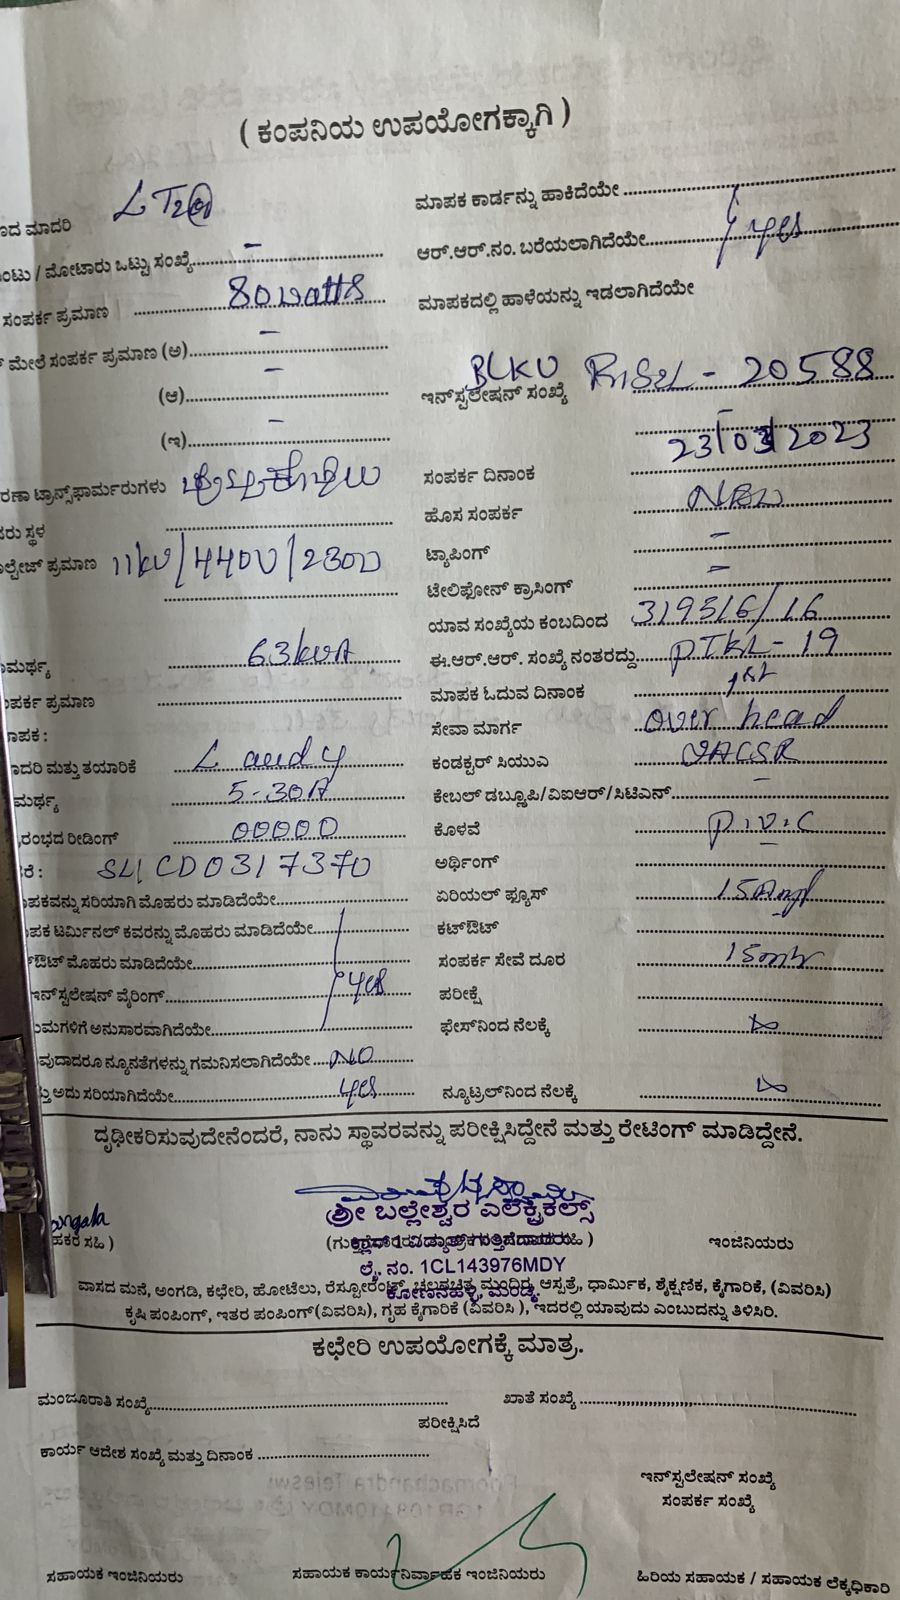 ( ಕಂಪನಿಯ ಉಪಯೋಗಕ್ಕಾಗಿ )
ಮಾದರಿ LT2(a)
ಮೋಟಾರು ಒಟ್ಟು ಸಂಖ್ಯೆ –
ಸಂಪರ್ಕ ಪ್ರಮಾಣ 80 watts
ಮೇಲೆ ಸಂಪರ್ಕ ಪ್ರಮಾಣ (ಅ) –
(ಆ) –
(ಇ) –
ಟ್ರಾನ್ಸ್‌ಫಾರ್ಮರುಗಳು
ಸ್ಥಳ
ಪ್ರಮಾಣ 11kV/440V/230V
63kVA
ಪ್ರಮಾಣ
ಮತ್ತು ತಯಾರಿಕೆ L and y
5-30A
ರೀಡಿಂಗ್ 00000
SLICD0317370
ಸರಿಯಾಗಿ ಮೊಹರು ಮಾಡಿದೆಯೇ
ಟರ್ಮಿನಲ್ ಕವರನ್ನು ಮೊಹರು ಮಾಡಿದೆಯೇ
ಮೊಹರು ಮಾಡಿದೆಯೇ
ಇನ್‌ಸ್ಟಲೇಷನ್ ವೈರಿಂಗ್ yes
ಅನುಸಾರವಾಗಿದೆಯೇ
ನ್ಯೂನತೆಗಳನ್ನು ಗಮನಿಸಲಾಗಿದೆಯೇ NO
ಅದು ಸರಿಯಾಗಿದೆಯೇ yes
ಮಾಪಕ ಕಾರ್ಡನ್ನು ಹಾಕಿದೆಯೇ
ಆರ್.ಆರ್.ನಂ. ಬರೆಯಲಾಗಿದೆಯೇ yes
ಮಾಪಕದಲ್ಲಿ ಹಾಳೆಯನ್ನು ಇಡಲಾಗಿದೆಯೇ
ಇನ್‌ಸ್ಟಲೇಷನ್ ಸಂಖ್ಯೆ - 20588
ಸಂಪರ್ಕ ದಿನಾಂಕ 23/03/2023
ಹೊಸ ಸಂಪರ್ಕ New
ಟ್ಯಾಪಿಂಗ್ –
ಟೇಲಿಫೋನ್ ಕ್ರಾಸಿಂಗ್ –
ಯಾವ ಸಂಖ್ಯೆಯ ಕಂಬದಿಂದ
ಈ.ಆರ್.ಆರ್. ಸಂಖ್ಯೆ ನಂತರದ್ದು PTKL - 19
ಮಾಪಕ ಓದುವ ದಿನಾಂಕ 1st
ಸೇವಾ ಮಾರ್ಗ over head
ಕಂಡಕ್ಟರ್ ಸಿಯುಎ
ಕೇಬಲ್ ಡಬ್ಲೂಪಿ/ವಿಐಆರ್/ಸಿಟಿಎನ್ –
ಕೊಳವೆ P.V.C
ಅರ್ಥಿಂಗ್
ಏರಿಯಲ್ ಫ್ಯೂಸ್ 15Amp
ಕಟ್‌ಔಟ್
ಸಂಪರ್ಕ ಸೇವೆ ದೂರ 15mtr
ಪರೀಕ್ಷೆ
ಫೇಸ್‌ನಿಂದ ನೆಲಕ್ಕೆ
ನ್ಯೂಟ್ರಲ್‌ನಿಂದ ನೆಲಕ್ಕೆ
ದೃಢೀಕರಿಸುವುದೇನೆಂದರೆ, ನಾನು ಸ್ಥಾವರವನ್ನು ಪರೀಕ್ಷಿಸಿದ್ದೇನೆ ಮತ್ತು ರೇಟಿಂಗ್ ಮಾಡಿದ್ದೇನೆ.
ಶ್ರೀ ಬಲ್ಲೇಶ್ವರ ಎಲೆಕ್ಟ್ರಿಕಲ್ಸ್
ಸಹಿ ) ಇಂಜಿನಿಯರು
ಲೈ. ನಂ. 1CL143976MDY
ವಾಸದ ಮನೆ, ಅಂಗಡಿ, ಕಛೇರಿ, ಹೋಟೆಲು, ರೆಸ್ಟೋರೆಂಟ್, ಚಲನಚಿತ್ರ ಮಂದಿರ, ಆಸ್ಪತ್ರೆ, ಧಾರ್ಮಿಕ, ಶೈಕ್ಷಣಿಕ, ಕೈಗಾರಿಕೆ, (ವಿವರಿಸಿ)
ಕೃಷಿ ಪಂಪಿಂಗ್, ಇತರ ಪಂಪಿಂಗ್(ವಿವರಿಸಿ), ಗೃಹ ಕೈಗಾರಿಕೆ (ವಿವರಿಸಿ ), ಇದರಲ್ಲಿ ಯಾವುದು ಎಂಬುದನ್ನು ತಿಳಿಸಿರಿ.
ಕಛೇರಿ ಉಪಯೋಗಕ್ಕೆ ಮಾತ್ರ.
ಮಂಜೂರಾತಿ ಸಂಖ್ಯೆ ಖಾತೆ ಸಂಖ್ಯೆ
ಪರೀಕ್ಷಿಸಿದೆ
ಕಾರ್ಯ ಆದೇಶ ಸಂಖ್ಯೆ ಮತ್ತು ದಿನಾಂಕ
ಇನ್‌ಸ್ಟಲೇಷನ್ ಸಂಖ್ಯೆ
ಸಂಪರ್ಕ ಸಂಖ್ಯೆ
ಸಹಾಯಕ ಇಂಜಿನಿಯರು ಸಹಾಯಕ ಕಾರ್ಯನಿರ್ವಾಹಕ ಇಂಜಿನಿಯರು ಹಿರಿಯ ಸಹಾಯಕ / ಸಹಾಯಕ ಲೆಕ್ಕಧಿಕಾರಿ